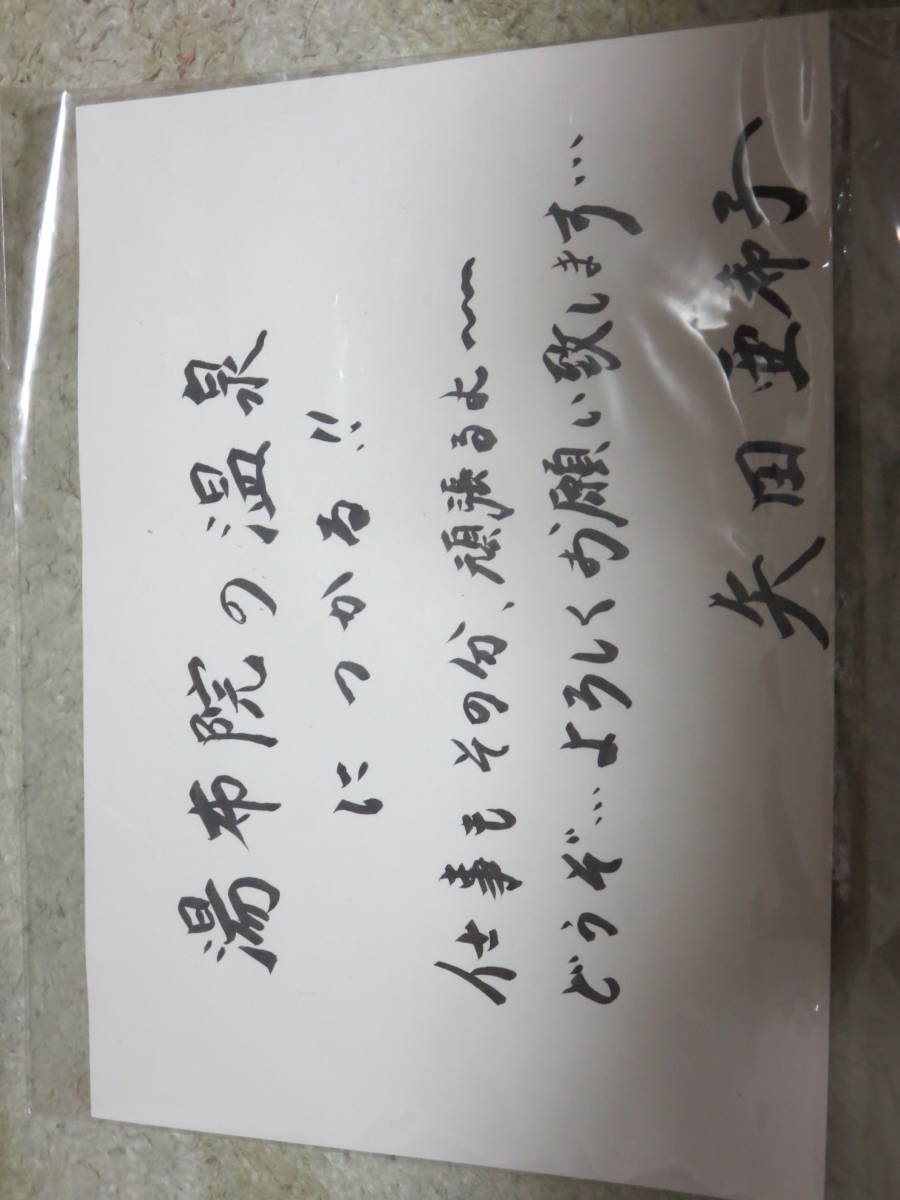 湯布院の温泉
につかる!!
仕事もその分、頑張るよ〜〜
どうぞ…よろしくお願い致します…
矢田亜希子